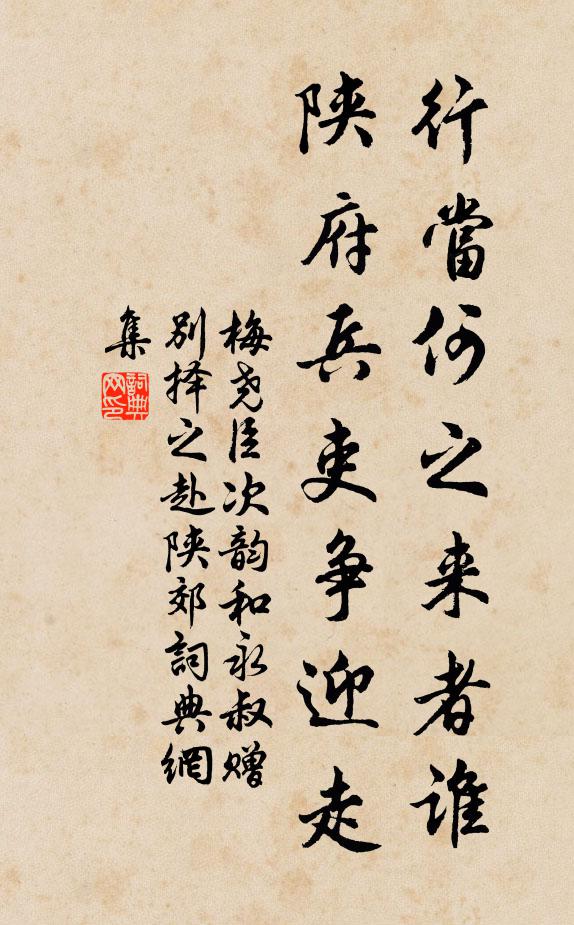 行當何之来者誰
陕府兵吏争迎走
梅尧臣次韵和永叔赠
别择之赴陕郊詞典網
集
詞典
网印